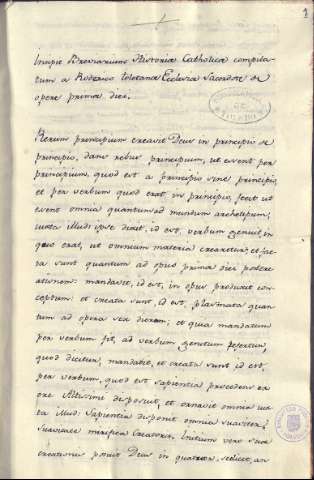 1
Incipit Breviarium Historiæ Catholicæ compila-
tum a Roderico toletanæ Ecclesiæ Sacerdote de
opere primæ diei.
Rerum principium creavit Deus in principio de
principio, dans rebus principium, ut essent per
principium, quod est a principio sine principio,
et per verbum quod erat in principio, fecit ut
essent omnia quantum ad mundum archetipum;
iuxta illud ipse dixit, id est, verbum genuit, in
quo erat, ut omnium materia crearetur; et fac-
ta sunt quantum ad opus primæ diei
mandavit, id est, in opus produxit con-
ceptum: et creata sunt, id est, plasmata quan-
tum ad opera sex dierum; et quia mandatum
per verbum fit, ad verbum genitum refertur,
quod dicitur, mandavit, et creata sunt id est,
per verbum, quod est sapientia procedens ex
ore Altissimi disposuit, et ornavit omnia iux-
ta illud: Sapientia disponit omnia suaviter;
Suavitate mirifica Creatoris. Initium vero suæ
creationis posuit Deus in quatuor, scilicet, an